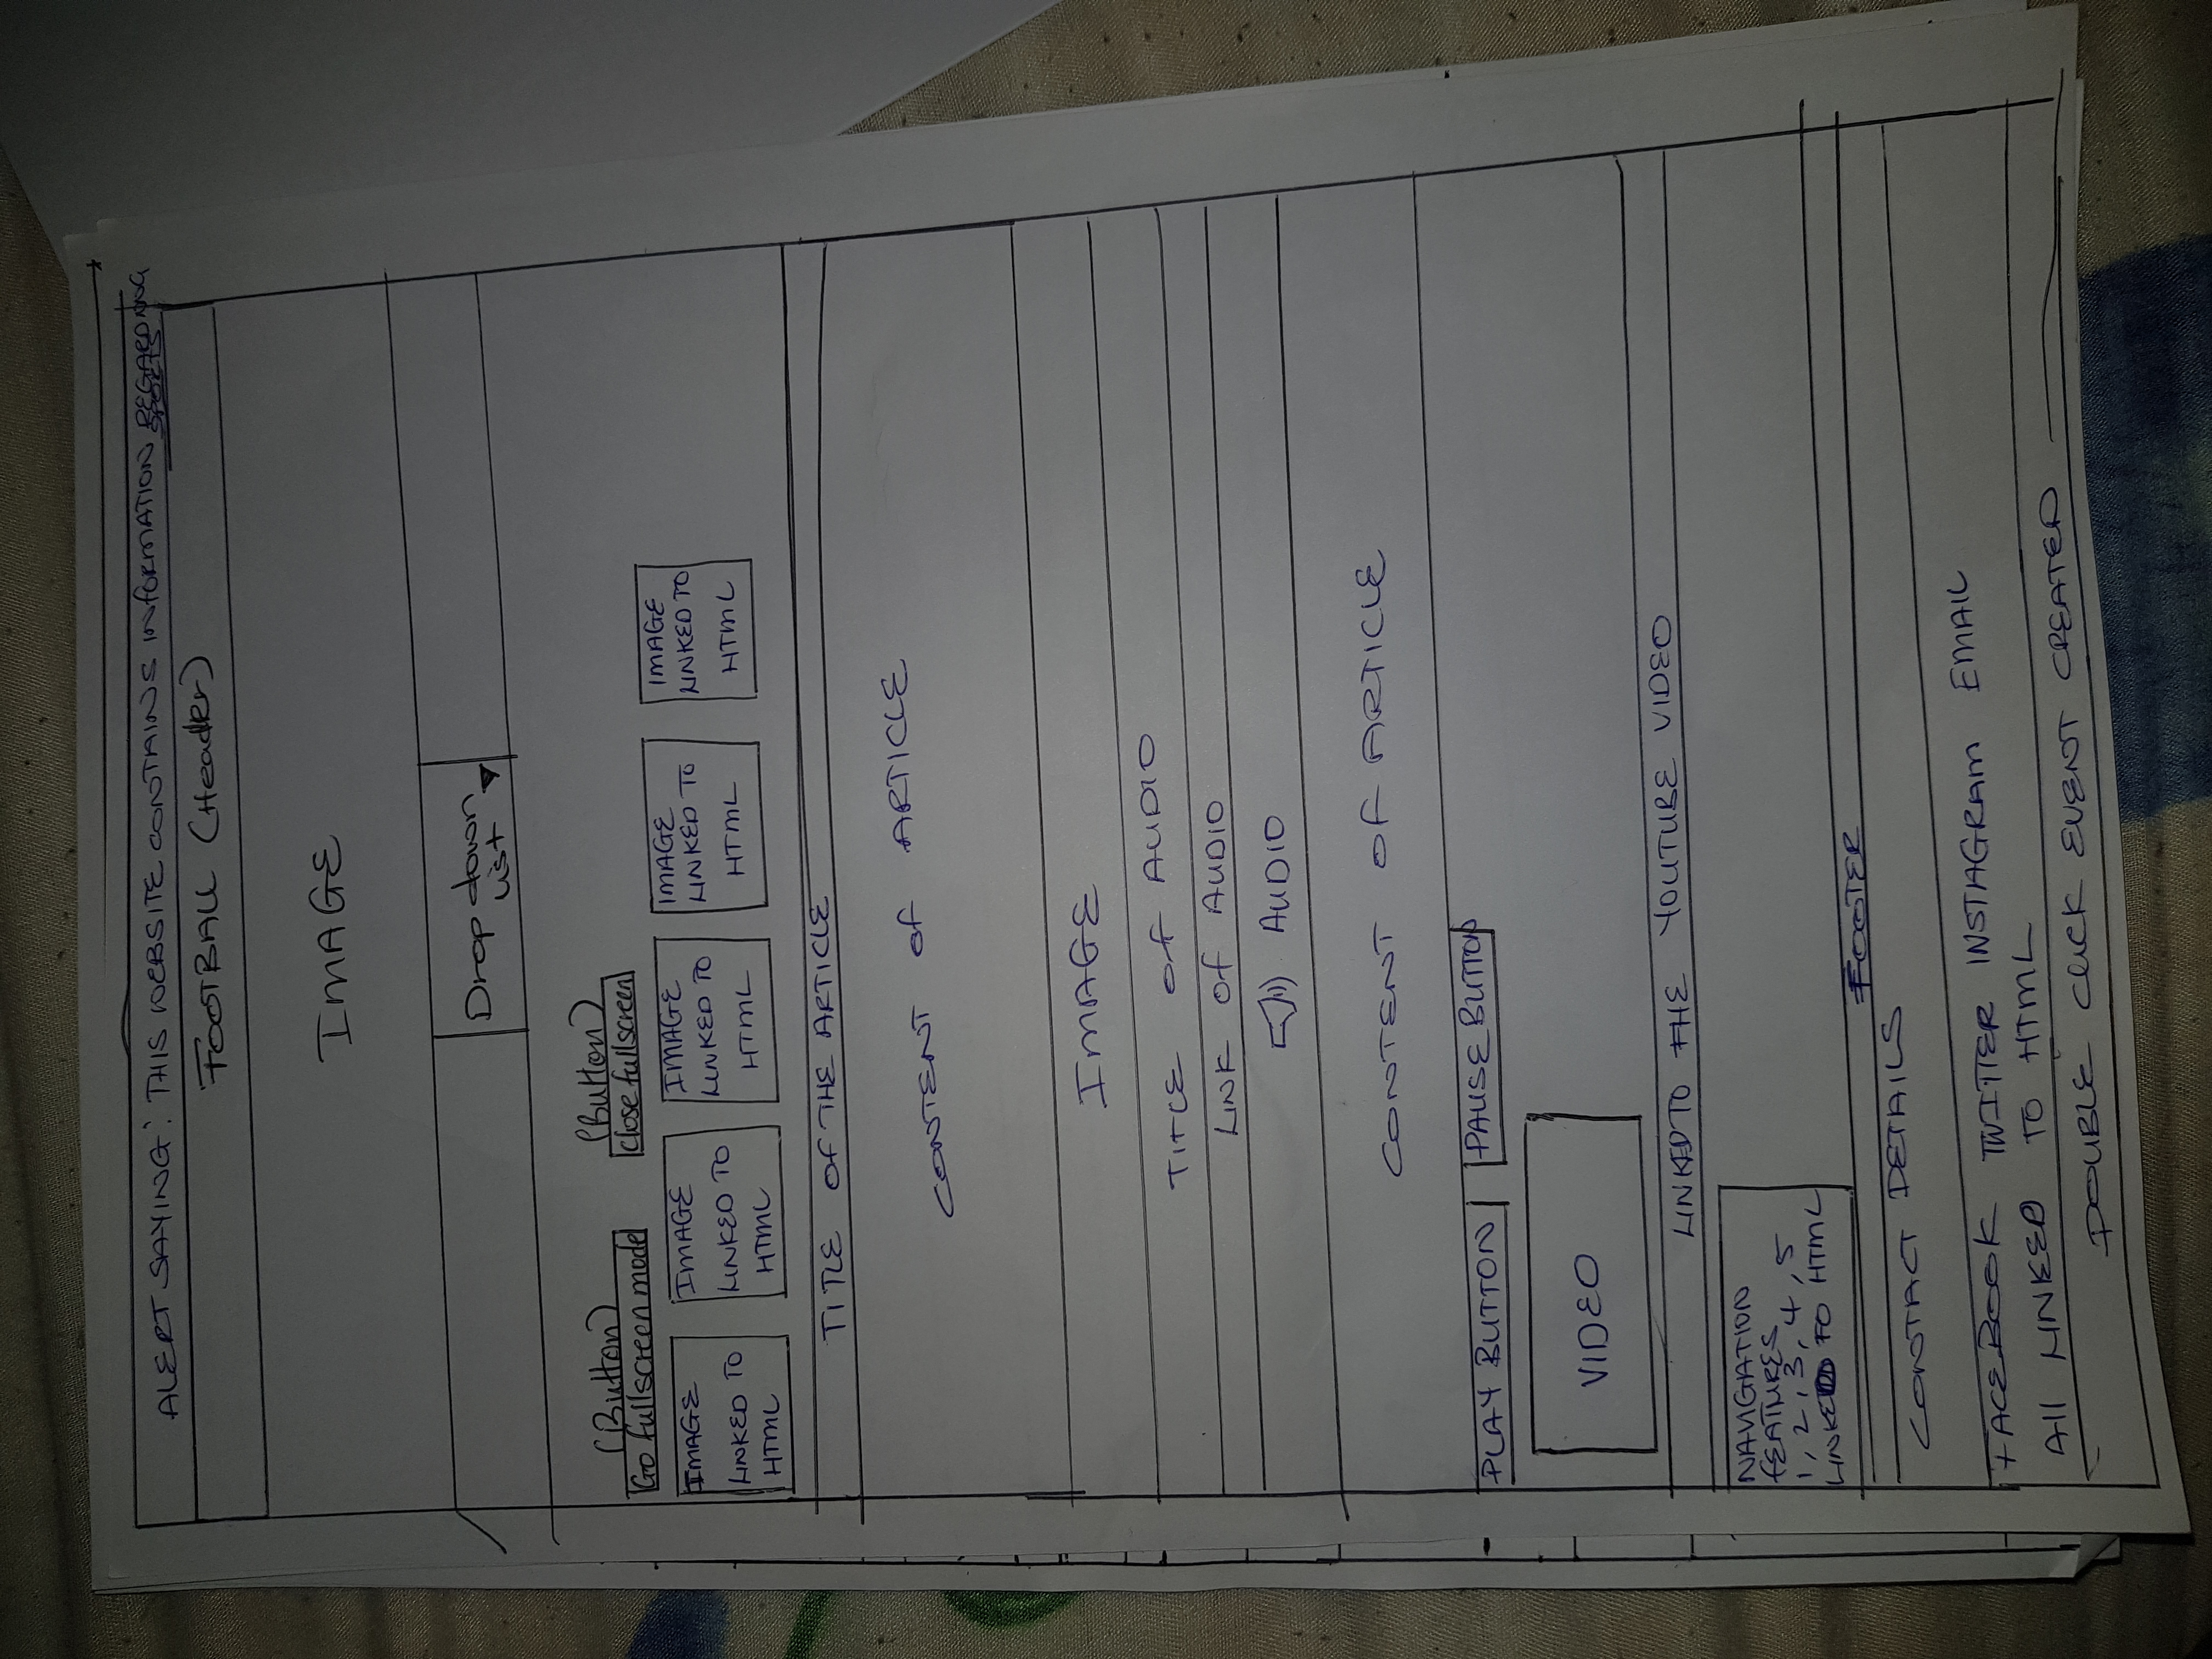 ALERT SAYING: THIS WEBSITE CONTAINS INFORMATION REGARDING
SPORTS
FOOTBALL (Header)
IMAGE
Drop down
list
(Button)
(Button)
Go fullscreen mode
close fullscreen
IMAGE
LINKED TO
HTML
IMAGE
LINKED TO
HTML
IMAGE
LINKED TO
HTML
IMAGE
LINKED TO
HTML
IMAGE
LINKED TO
HTML
TITLE OF THE ARTICLE
CONTENT OF ARTICLE
IMAGE
TITLE OF AUDIO
LINK OF AUDIO
AUDIO
CONTENT OF ARTICLE
PLAY BUTTON
PAUSE BUTTON
VIDEO
LINKED TO THE YOUTUBE VIDEO
NAVIGATION
FEATURES
1, 2, 3, 4, 5
LINKED TO HTML
FOOTER
CONTACT DETAILS
FACEBOOK TWITTER INSTAGRAM EMAIL
All LINKED TO HTML
DOUBLE CLICK EVENT CREATED